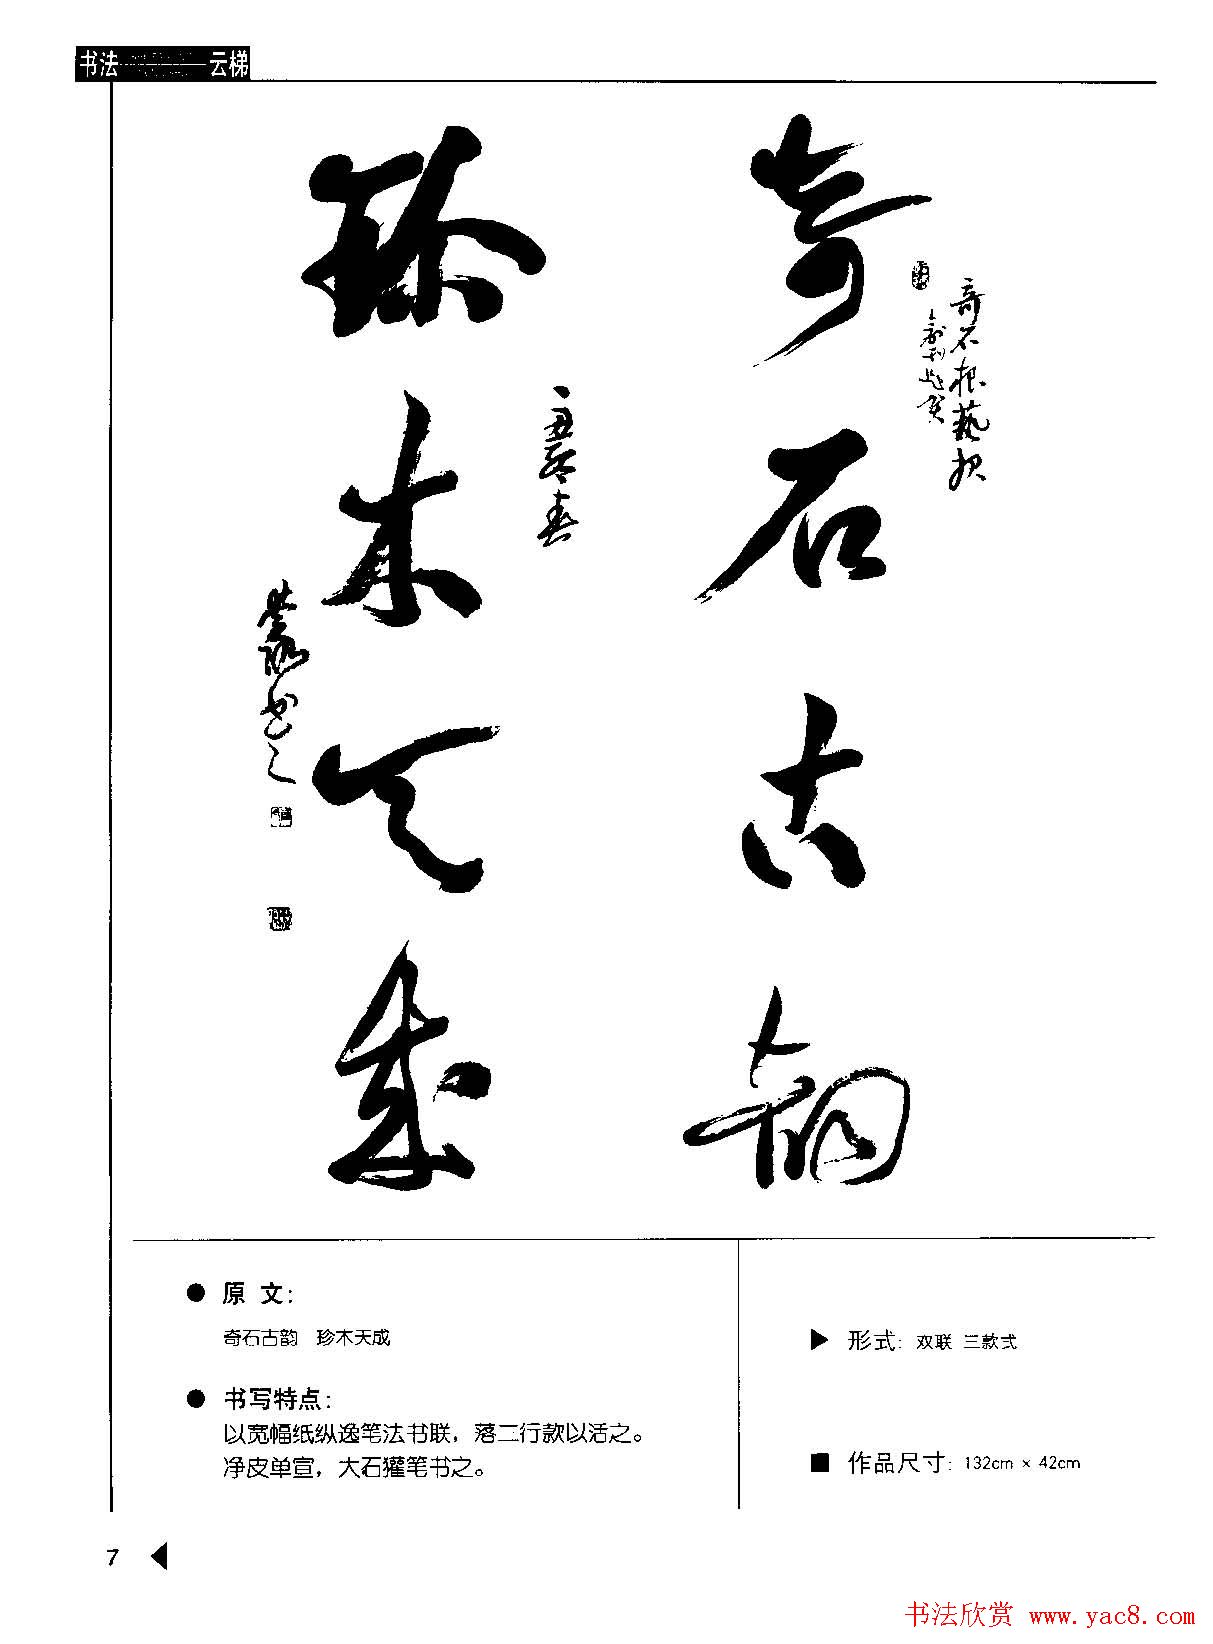 书法——云梯
奇石古韵
奇石根艺报
创刊志贺
珍木天成
丑年春
书之
● 原 文:
奇石古韵 珍木天成
● 书写特点:
以宽幅纸纵逸笔法书联，落二行款以活之。
净皮单宣，大石獾笔书之。
▶ 形式: 双联 三款式
■ 作品尺寸: 132cm × 42cm
7
书法欣赏 www.yac8.com